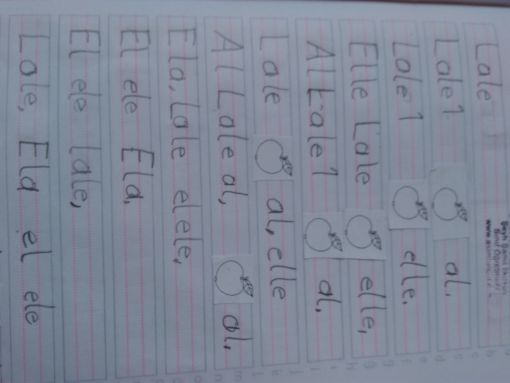 Lale
Lale! al.
Lale! elle.
Elle Lale elle,
Al Lale! al,
Lale al, elle
Al Lale al, al,
Ela, Lale el ele,
El ele Ela,
El ele Lale,
Lale, Ela el ele